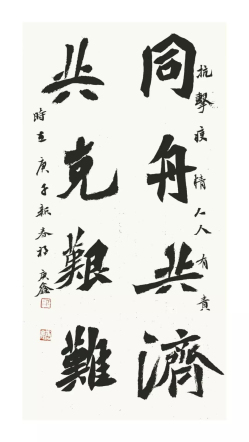 抗擊疫情人人有責
同舟共濟
共克艱難
時在庚子新春